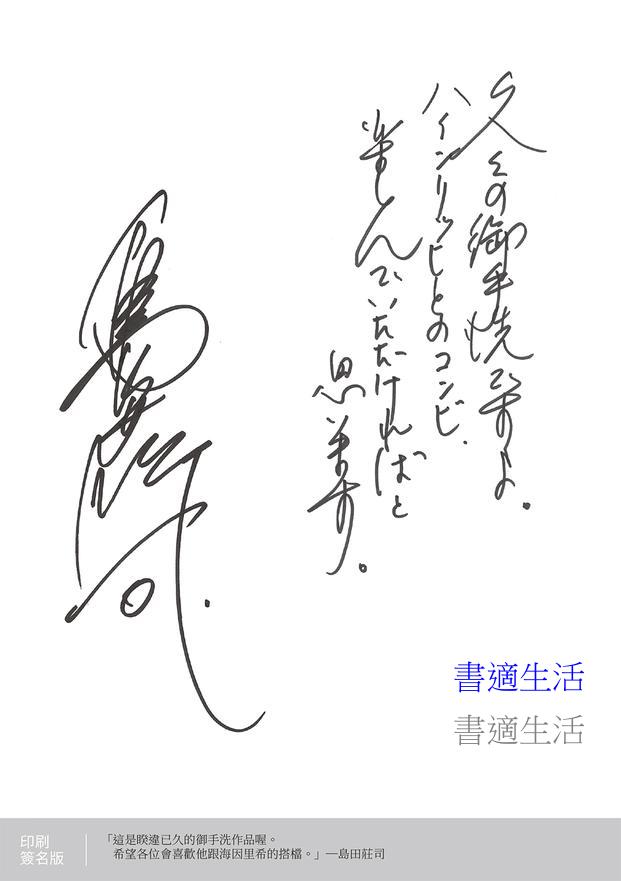 久々の御手洗ですよ。
ハインリッヒとのコンビ、
楽しんでいただければと
思います。
島田荘司
書適生活
書適生活
印刷
簽名版
「這是睽違已久的御手洗作品喔。
希望各位會喜歡他跟海因里希的搭檔。」—島田莊司